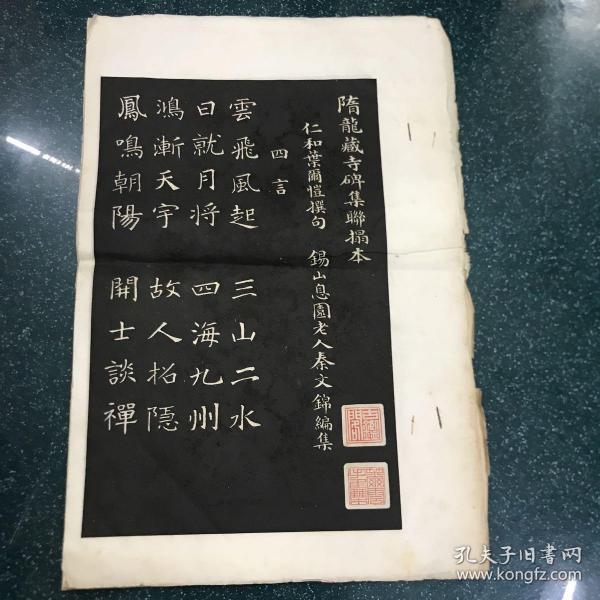 隋龍藏寺碑集聯搨本
仁和葉爾愷撰句 錫山息園老人秦文錦編集
四言
雲飛風起 三山二水
日就月將 四海九州
鴻漸天宇 故人招隱
鳳鳴朝陽 開士談禪
孔夫子旧书网
www.kongfz.com